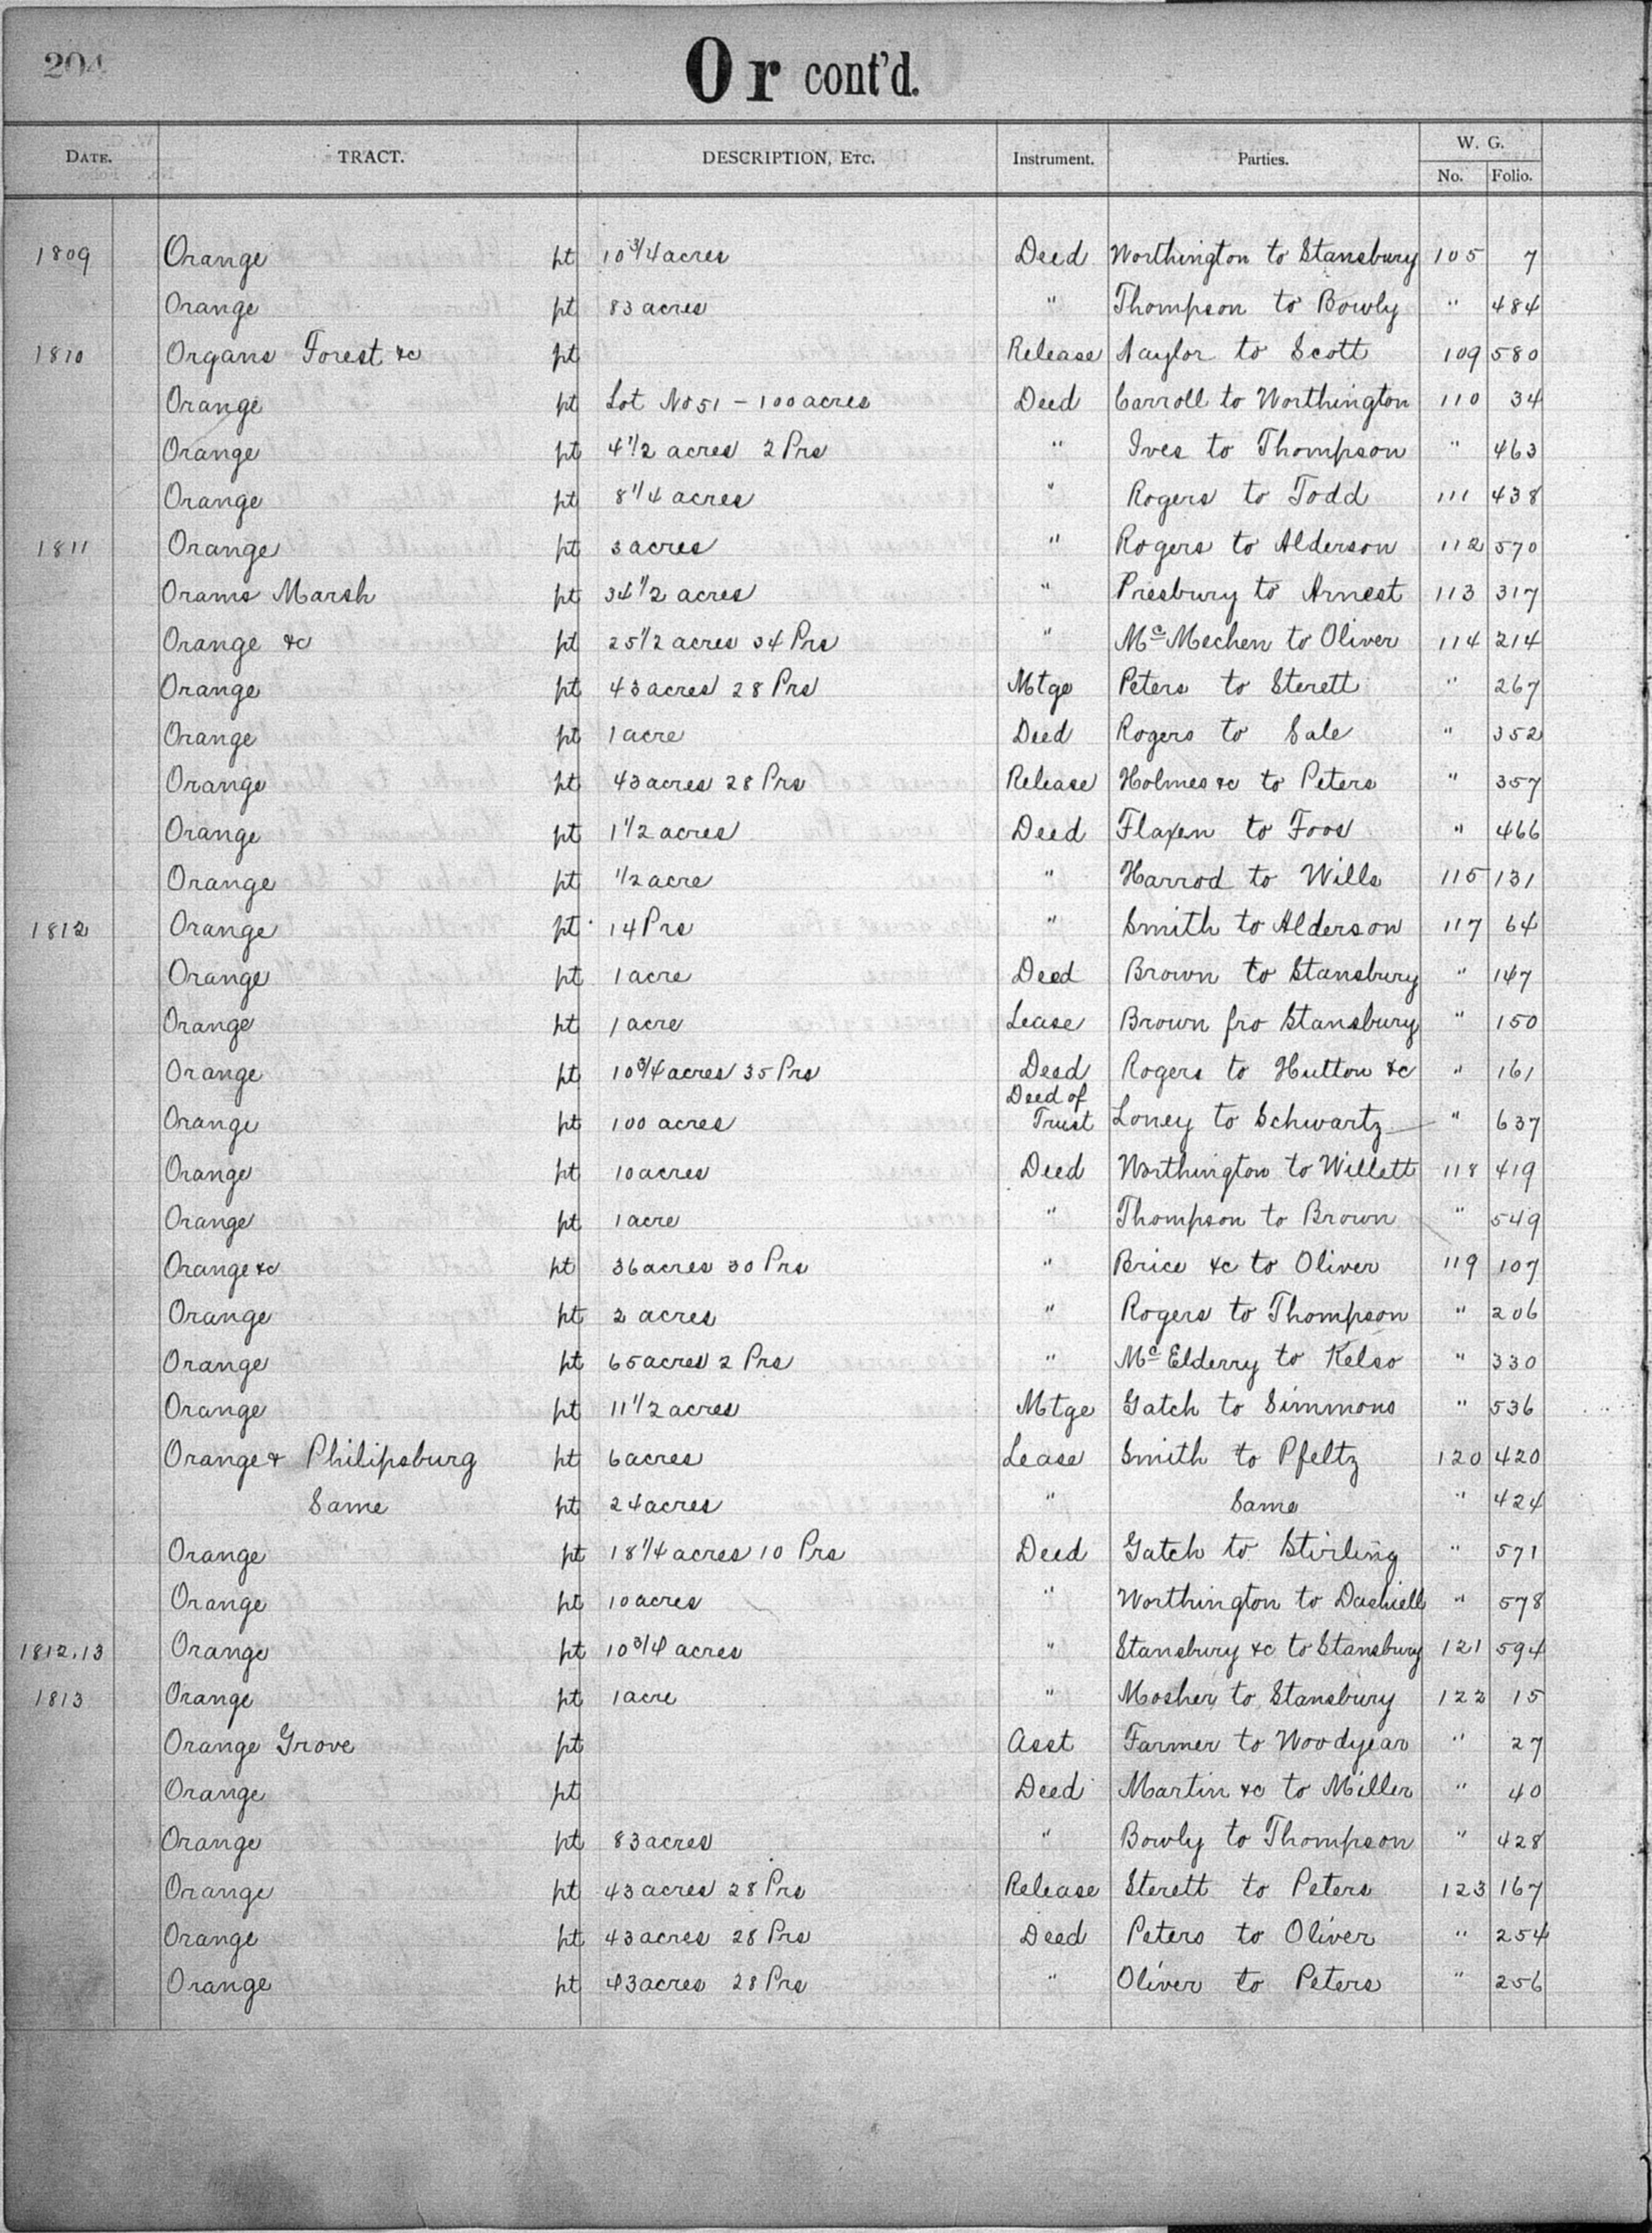 204
Or cont'd.
DATE. TRACT. DESCRIPTION, ETC. Instrument. Parties. W. G.
No. Folio.
1809 Orange pt 10 3/4 acres Deed Worthington to Stansbury 105 7
Orange pt 83 acres " Thompson to Bowly " 484
1810 Organs Forest &c pt Release Naylor to Scott 109 580
Orange pt Lot No 51 - 100 acres Deed Carroll to Worthington 110 34
Orange pt 4 1/2 acres 2 Prs " Ives to Thompson " 463
Orange pt 8 1/4 acres " Rogers to Todd 111 438
1811 Orange pt 3 acres " Rogers to Alderson 112 570
Orams Marsh pt 34 1/2 acres " Presbury to Arnest 113 317
Orange &c pt 25 1/2 acres 34 Prs " McMechen to Oliver 114 214
Orange pt 43 acres 28 Prs Mtge Peters to Sterett " 267
Orange pt 1 acre Deed Rogers to Sale " 352
Orange pt 43 acres 28 Prs Release Holmes &c to Peters " 357
Orange pt 1 1/2 acres Deed Flaxen to Foos " 466
Orange pt 1/2 acre " Harrod to Wills 115 131
1812 Orange pt 14 Prs " Smith to Alderson 117 64
Orange pt 1 acre Deed Brown to Stansbury " 147
Orange pt 1 acre Lease Brown fro Stansbury " 150
Orange pt 10 3/4 acres 35 Prs Deed Rogers to Hutton &c " 161
Orange pt 100 acres Deed of Trust Loney to Schwartz " 637
Orange pt 10 acres Deed Worthington to Willett 118 419
Orange pt 1 acre " Thompson to Brown " 549
Orange &c pt 36 acres 30 Prs " Brice &c to Oliver 119 107
Orange pt 2 acres " Rogers to Thompson " 206
Orange pt 65 acres 2 Prs " McElderry to Kelso " 330
Orange pt 11 1/2 acres Mtge Gatch to Simmons " 536
Orange & Philipsburg pt 6 acres Lease Smith to Pfeltz 120 420
Same pt 24 acres " Same " 424
Orange pt 18 1/4 acres 10 Prs Deed Gatch to Stirling " 571
Orange pt 10 acres " Worthington to Dashiell " 578
1812.13 Orange pt 10 3/4 acres " Stansbury &c to Stansbury 121 594
1813 Orange pt 1 acre " Mosher to Stansbury 122 15
Orange Grove pt Asst Farmer to Woodyear " 27
Orange pt Deed Martin &c to Miller " 40
Orange pt 83 acres " Bowly to Thompson " 428
Orange pt 43 acres 28 Prs Release Sterett to Peters 123 167
Orange pt 43 acres 28 Prs Deed Peters to Oliver " 254
Orange pt 43 acres 28 Prs " Oliver to Peters " 256